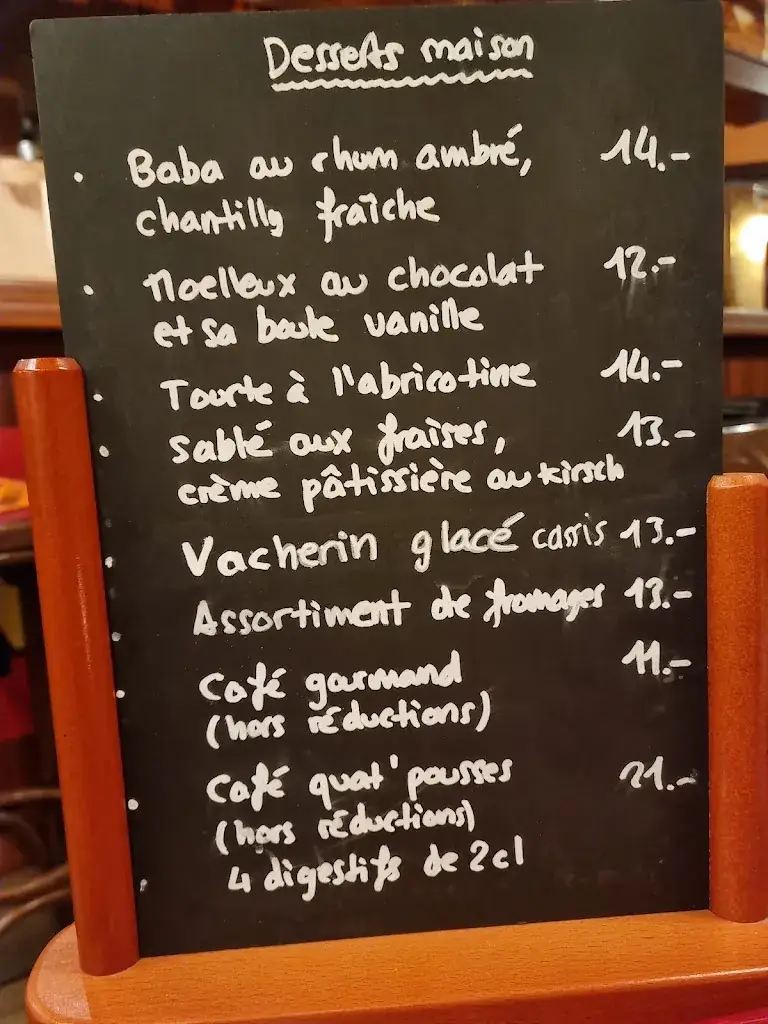 Desserts maison
. Baba au rhum ambré, 14.-
chantilly fraîche
. Moelleux au chocolat 12.-
et sa boule vanille
. Tourte à l'abricotine 14.-
. Sablé aux fraises, 13.-
crème pâtissière au kirsch
. Vacherin glacé cassis 13.-
. Assortiment de fromages 13.-
. Café gourmand 11.-
(hors réductions)
. Café quat'pousses 21.-
(hors réductions)
. 4 digestifs de 2cl